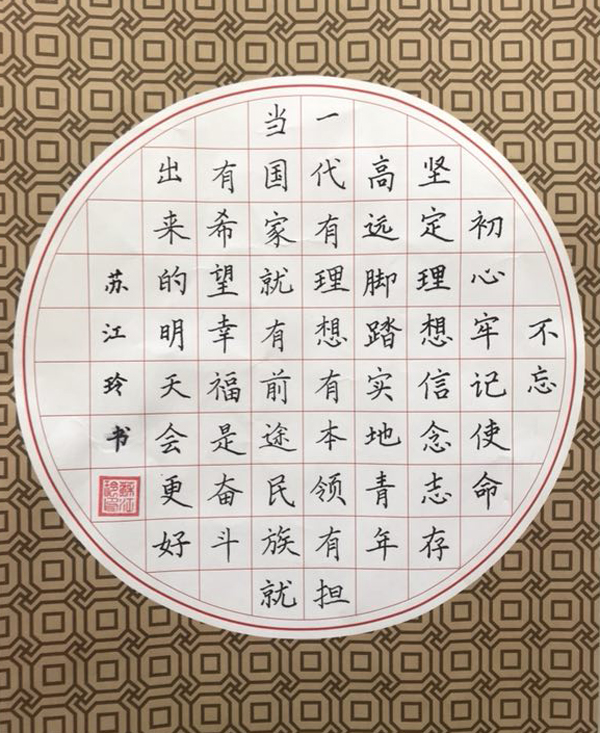 不忘
初心牢记使命
坚定理想信念志存
高远脚踏实地青年
一代有理想有本领有担
当国家就有前途民族就
有希望幸福是奋斗
出来的明天会更好
苏江玲书